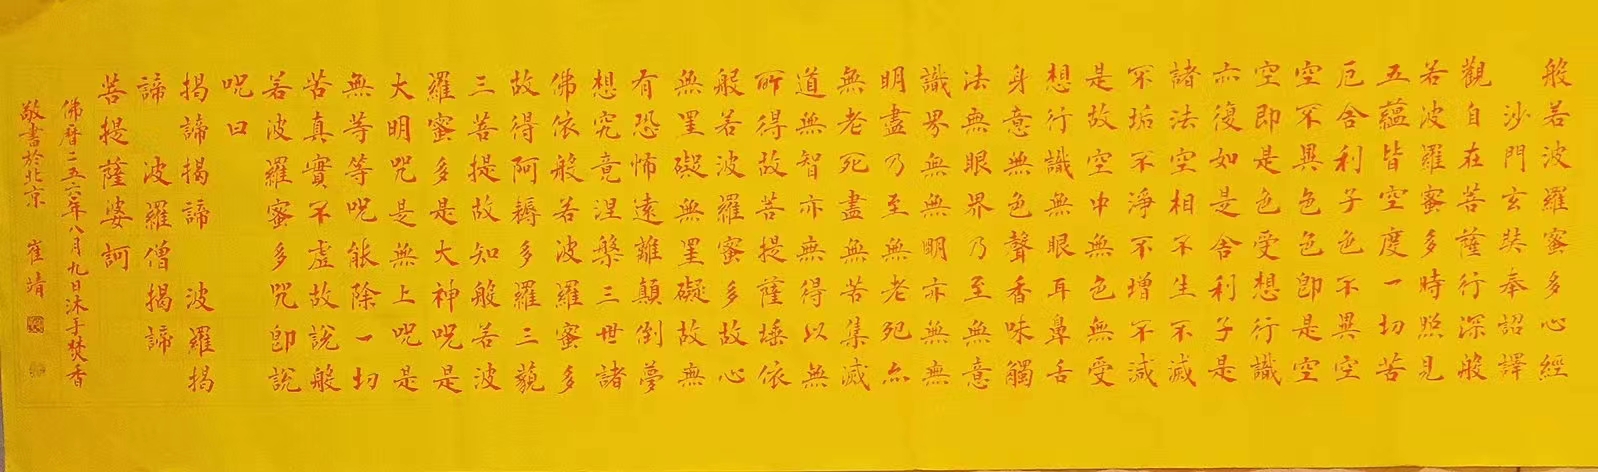 般若波羅蜜多心經
沙門玄奘奉詔譯
觀自在菩薩行深般
若波羅蜜多時照見
五蘊皆空度一切苦
厄舍利子色不異空
空不異色色即是空
空即是色受想行識
亦復如是舍利子是
諸法空相不生不滅
不垢不淨不增不減
是故空中無色無受
想行識無眼耳鼻舌
身意無色聲香味觸
法無眼界乃至無意
識界無無明亦無無
明盡乃至無老死亦
無老死盡無苦集滅
道無智亦無得以無
所得故菩提薩埵依
般若波羅蜜多故心
無罣礙無罣礙故無
有恐怖遠離顛倒夢
想究竟涅槃三世諸
佛依般若波羅蜜多
故得阿耨多羅三藐
三菩提故知般若波
羅蜜多是大神咒是
大明咒是無上咒是
無等等咒能除一切
苦真實不虛故說般
若波羅蜜多咒即說
咒曰
揭諦揭諦 波羅揭
諦 波羅僧揭諦
菩提薩婆訶
佛曆二五六〇年八月九日沐手焚香
敬書於北京 崔靖